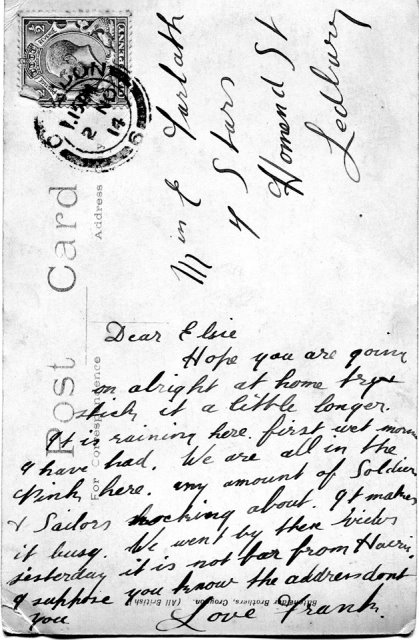 Post Card
Address
For Correspondence
HALF PENNY
1.15PM
2 NO
14
Min E Tarlath
4 Stars
Homend St
Ledbury
Dear Elsie
Hope you are going
on alright at home try &
stick it a little longer.
It is raining here first wet morn
I have had. We are all in the
Pink here. any amount of Soldier
& Sailors knocking about. It makes
it busy. We went by there
yesterday it is not far from
I suppose you know the address dont
you Love Frank.
Brothers, Croydon. (All British)